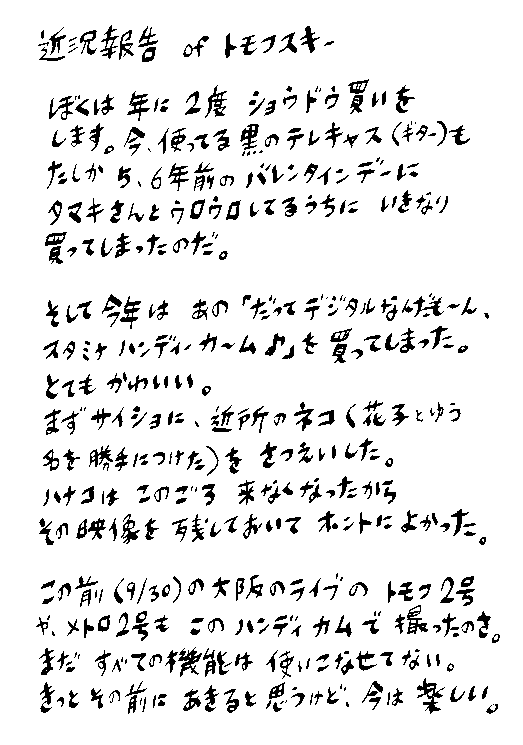 近況報告 of トモフスキー
ぼくは 年に 2度 ショウドウ買いを
します。今、使ってる黒のテレキャス(ギター)も
たしか 5、6年前の バレンタインデーに
タマキさんとウロウロしてるうちに いきなり
買ってしまったのだ。
そして今年は あの「だってデジタルなんだもーん、
スタミナ ハンディーカーム♪」を 買ってしまった。
とても かわいい。
まずサイショに、近所のネコ(花子とゆう
名を勝手につけた)を さつえいした。
ハナコは このごろ 来なくなったから
その映像を 残しておいて ホントによかった。
この前(9/30)の大阪のライブの トモフ2号
や、メトロ2号も このハンディカムで 撮ったのさ。
まだ すべての機能は 使いこなせてない。
きっとその前に あきると思うけど、今は 楽しい。